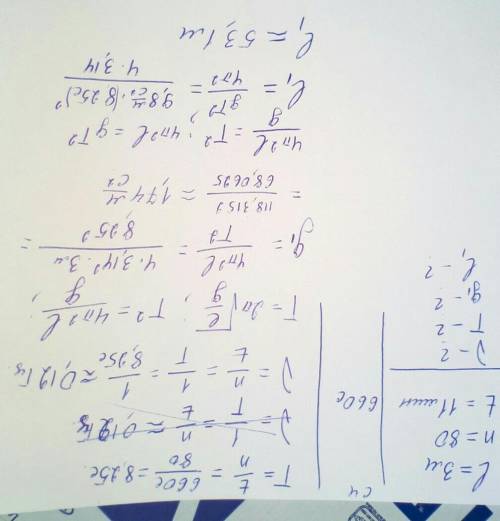 l = 3м
n = 80
t = 11мин
СИ
660с
ν - ?
T - ?
g₁ - ?
l₁ - ?
T = t/n = 660с/80 = 8,25с
ν = 1/T = n/t ≈ 0,12Гц
ν = n/t = 1/T = 1/8,25с ≈ 0,12Гц
T = 2π√(l/g) ; T² = 4π²l/g ;
g₁ = 4π²l/T² = 4·3,14²·3м/8,25² =
= 118,3152/68,0625 ≈ 1,74 м/с²
4π²l/g = T² ; 4π²l = gT²
l₁ = gT²/4π² = 9,8 м/с²·(8,25с)²/4·3,14
l₁ ≈ 53,1м